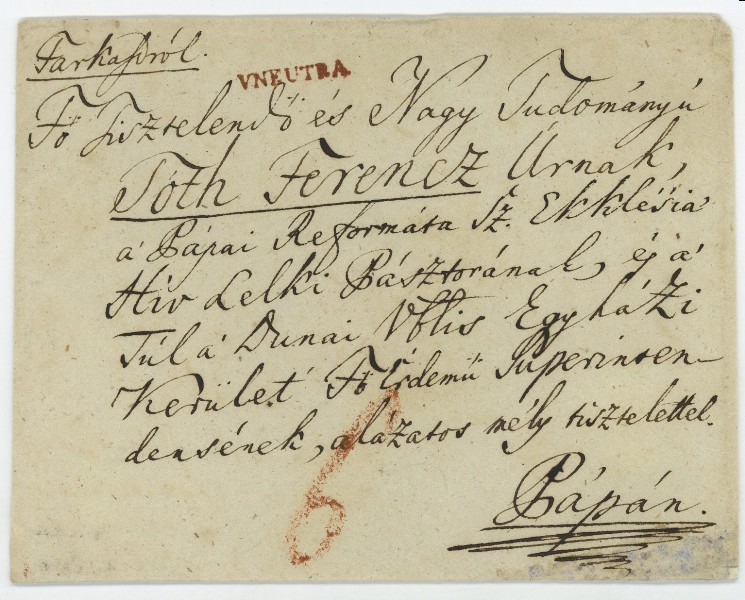 Farkasdról.
VNEUTRA
Fő Tisztelendő és Nagy Tudományú
Tóth Ferencz Úrnak,
a' Pápai Reformáta Sz. Ekklésia
Hív Lelki Pásztorának, és a'
Túl a' Dunai Vttlis Egyházi
Kerület' Fő Érdemű Superinten-
densének, alázatos mély tisztelettel.
Pápán.
6